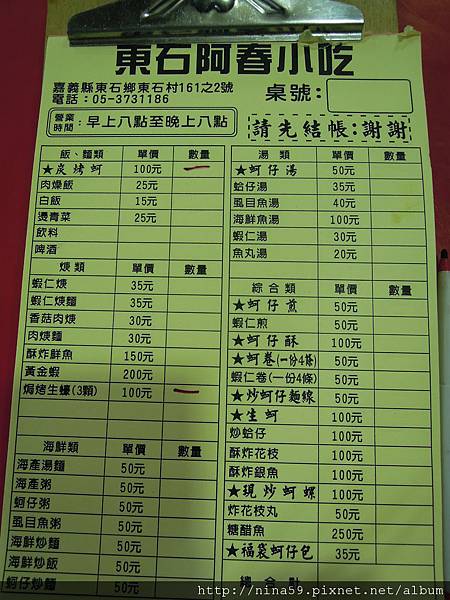 東石阿春小吃
嘉義縣東石鄉東石村161之2號
電話：05-3731186
桌號：
營業時間：早上八點至晚上八點
請先結帳：謝謝
飯、麵類 單價 數量
★炭烤蚵 100元 一
肉燥飯 25元
白飯 15元
燙青菜 25元
飲料
啤酒
焿類 單價 數量
蝦仁焿 35元
蝦仁焿麵 35元
香菇肉焿 30元
肉焿麵 30元
酥炸鮮魚 150元
黃金蝦 200元
焗烤生蠔(3顆) 100元 一
海鮮類 單價 數量
海產湯麵 50元
海產粥 50元
蚵仔粥 50元
虱目魚粥 50元
海鮮炒麵 50元
海鮮炒飯 50元
蚵仔炒麵 50元
湯類 單價 數量
★蚵仔湯 50元
蛤仔湯 35元
虱目魚湯 40元
海鮮魚湯 100元
蝦仁湯 30元
魚丸湯 20元
綜合類 單價 數量
★蚵仔煎 50元
蝦仁煎 50元
★蚵仔酥 100元
★蚵卷(一份4條) 50元
蝦仁卷(一份4條) 50元
★炒蚵仔麵線 50元
★生蚵 100元
炒蛤仔 100元
酥炸花枝 100元
酥炸銀魚 100元
★現炒蚵螺 100元
炸花枝丸 50元
糖醋魚 250元
★福袋蚵仔包 35元
總合計
http://nina59.pixnet.net/album